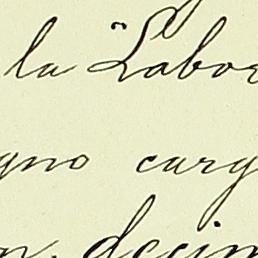 la "Labor
gno carg
n. decim